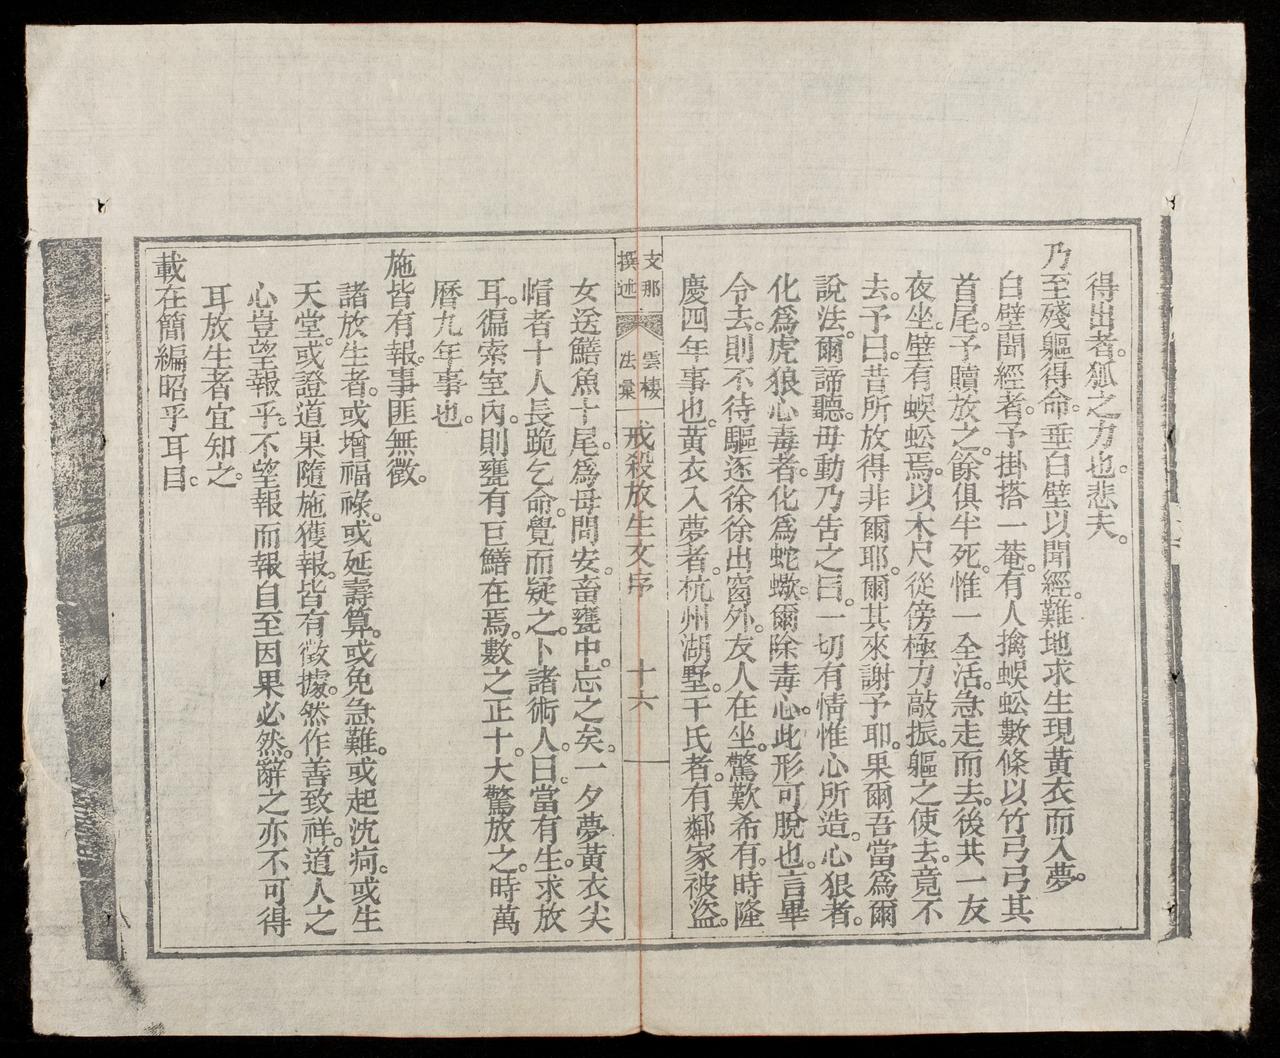 得出者。狐之力也。悲夫。
乃至殘軀得命。垂白壁以聞經。難地求生。現黃衣而入夢。
白壁聞經者。予掛搭一菴。有人擒蜈蚣數條。以竹弓弓其
首尾。予贖放之。餘俱半死。惟一全活。急走而去。後共一友
夜坐。壁有蜈蚣焉。以木尺從傍極力敲振。驅之使去。竟不
去。予曰。昔所放得非爾耶。爾其來謝予耶。果爾吾當為爾
說法。爾諦聽。毋動。乃告之曰。一切有情。惟心所造。心狠者。
化為虎狼。心毒者。化為蛇蠍。爾除毒心。此形可脫也。言畢
令去。則不待驅逐。徐徐出窗外。友人在坐。驚歎希有。時隆
慶四年事也。黃衣入夢者。杭州湖墅干氏者。有鄰家被盜。
支那
撰述
雲棲
法彙
戒殺放生文序
十六
女送鱔魚十尾。為母問安。畜甕中。忘之矣。一夕夢黃衣尖
帽者十人。長跪乞命。覺而疑之。卜諸術人。曰。當有生求放
耳。徧索室內。則甕有巨鱔在焉。數之正十。大驚放之。時萬
曆九年事也。
施皆有報。事匪無徵。
諸放生者。或增福祿。或延壽算。或免急難。或起沈痾。或生
天堂。或證道果。隨施獲報。皆有徵據。然作善致祥。道人之
心。豈望報乎。不望報而報自至。因果必然。辭之亦不可得
耳。放生者宜知之。
載在簡編。昭乎耳目。